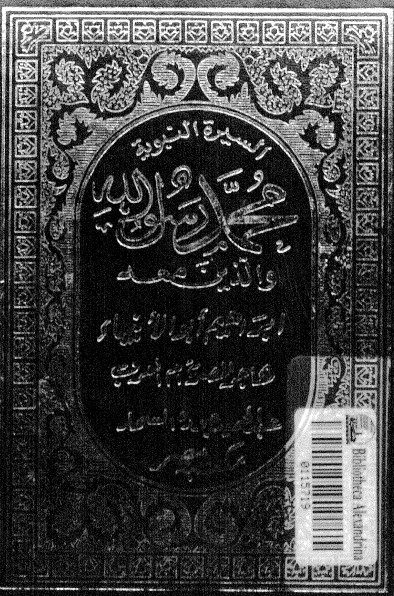 السيرة النبوية
محمد رسول الله
والذين معه
ابراهيم أبو الأنبياء
هاجر المصرية أم العرب
عبد الحميد جودة السحار
مكتبة مصر
0115719
Bibliotheca Alexandrina